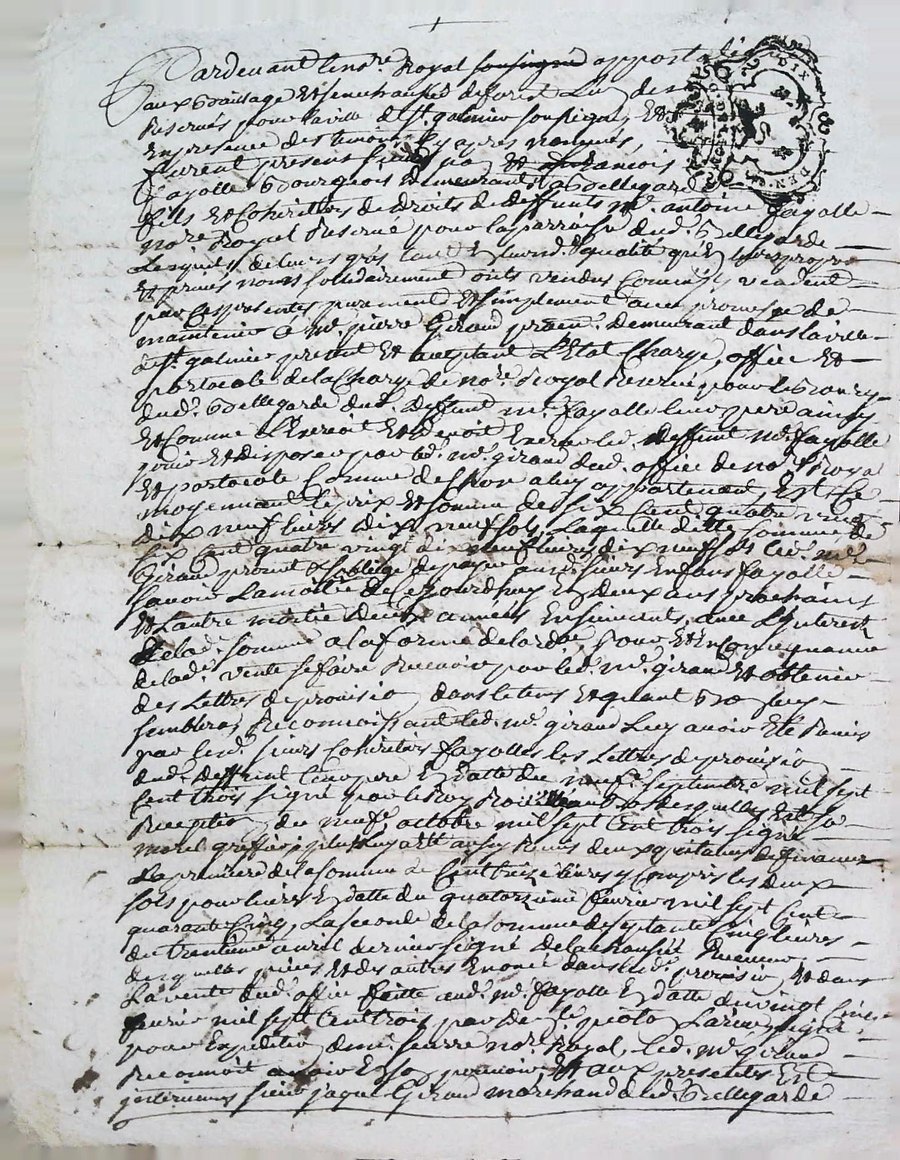 Pardevant le nore. Royal soussigné
aux Bailliage et senechaussée de forest
Reservés pour la ville de st. galmier soussigné, et
En presence des temoins cy apres nommés,
furent presens sieurs et francois
fayolle Bourgeois demeurants a Bellegarde
fils et Cohéritiers de droits de deffunts me. antoine fayolle
nore. Royal Reservé pour la parroisse dud. Bellegarde
Lesquels de leurs grés tant En lurd. qualité qu'En
et privés noms solidairement onts vendus Comme ils vendent
par Ces presentes purement et simplement avec promesse de
maintenir a me. pierre Giraud praticn. demeurant dans la ville
de st. galmier present et acceptant L'Etat Charge, office et
protocole de la Charge de nore. Royal Reservé pour le Bourg
dud. Bellegarde dud. deffunt me. fayolle leur pere ainsy
et Comme L'Exercoit et devoit Exercer led. deffunt me. fayolle
jouir et disposer par led. me. giraud dud. office de nore. Royal
et protocole Comme de chose a luy appartenant, Est Ce
moyennant le prix et somme de six Cent quatre vingt
dix neuf livres dix neuf sols, Laquelle ditte somme de
six Cent quatre vingt dix neuf livres dix neuf s. led. me.
Giraud promet et s'oblige de payer aux sieurs Enfans fayolle
savoir La moitié de Ce jourdhuy En deux ans prochains
et L'autre moitié deux années Ensuivants, avec L'interest
de lad. somme a la forme de lordce. pour et En Consequance
de lad. vente se faire Recevoir par led. me. giraud et obtenir
des Lettres de provision dans le tems et quant Bon luy
semblera, Reconnoissant led. me. giraud Luy avoir Eté Remis
par lesd. sieurs Cohéritiers fayolles les Lettres de provision
dud. deffunt leur pere En datte du neufe. septembre mil sept
Cent trois signé par le Roy desquelles Est sa
Reception du neufe. octobre mil sept Cent trois signé
morel greffier, plus Luy aett. aussy Remis deux quitances de finance
La premiere de la somme de Cent treize livres y Compris les deux
sols pour livres En datte du quatorzieme fevrier mil sept Cent
quarante Cinq, La seconde de la somme de septante Cinq livres
du trentieme avril dernier signé de la chaussé Receveur,
desquelles pieces et des autres Enoncé dans lesd. provision, et dans
La vente dud. office faitte aud. me. fayolle En datte du vingt Cinq
fevrier mil sept Cent trois par
pour Expedition demisserre nore. Royal, led. me. giraud
Reconnoit avoir En son pouvoir, Et aux presentes Est
intervenus sieur jaque Giraud marchand aud. Bellegarde